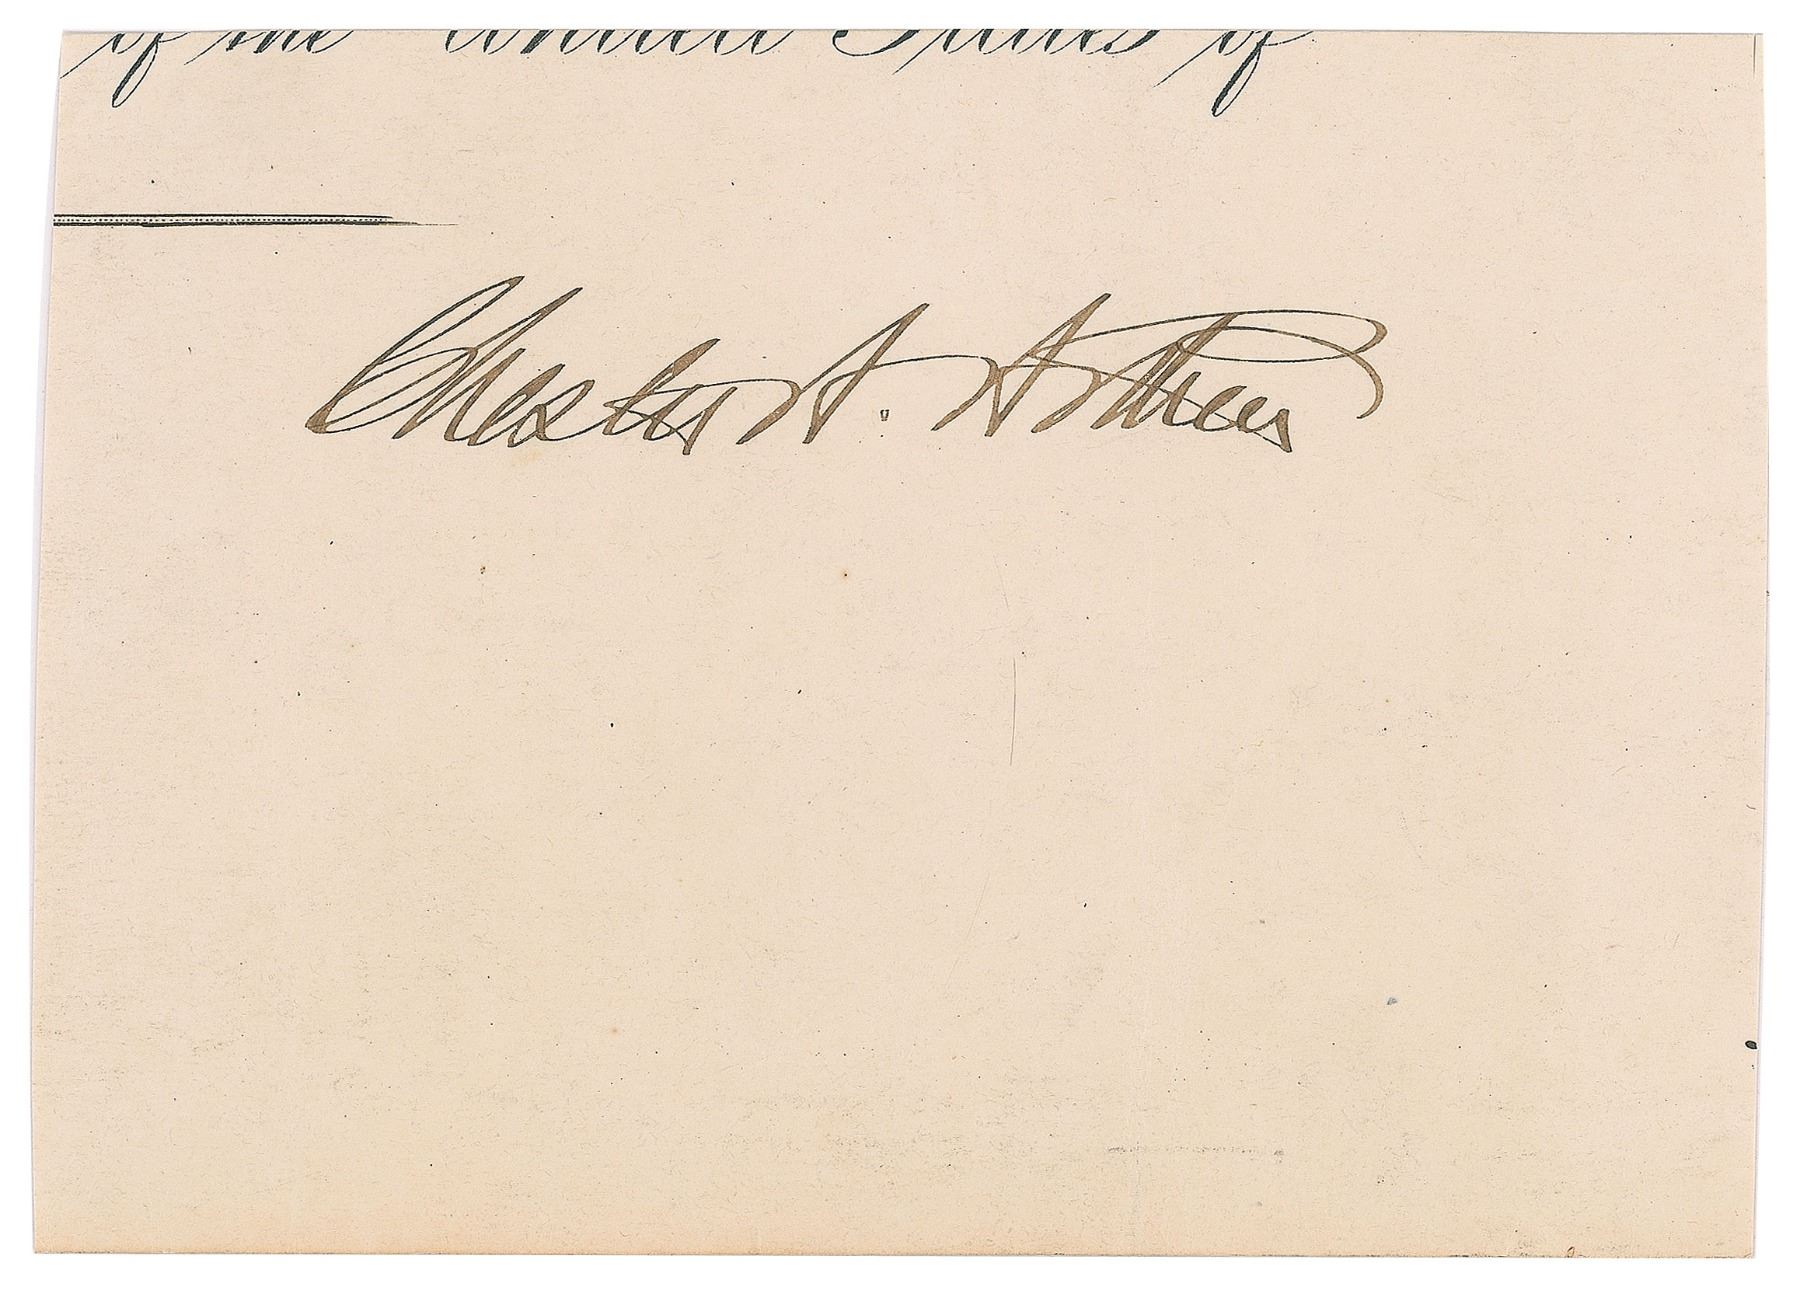 of the United States of
Chester A. Arthur